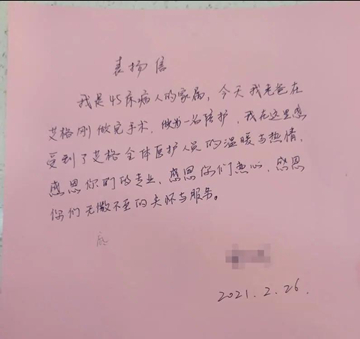 表扬信
我是45床病人的家属，今天我老爸在
艾格刚做完手术，做为一名陪护，我在这里感
受到了艾格全体医护人员的温暖与热情，
感恩你们的专业，感恩你们热心，感恩
你们无微不至的关怀与服务。
2021.2.26.